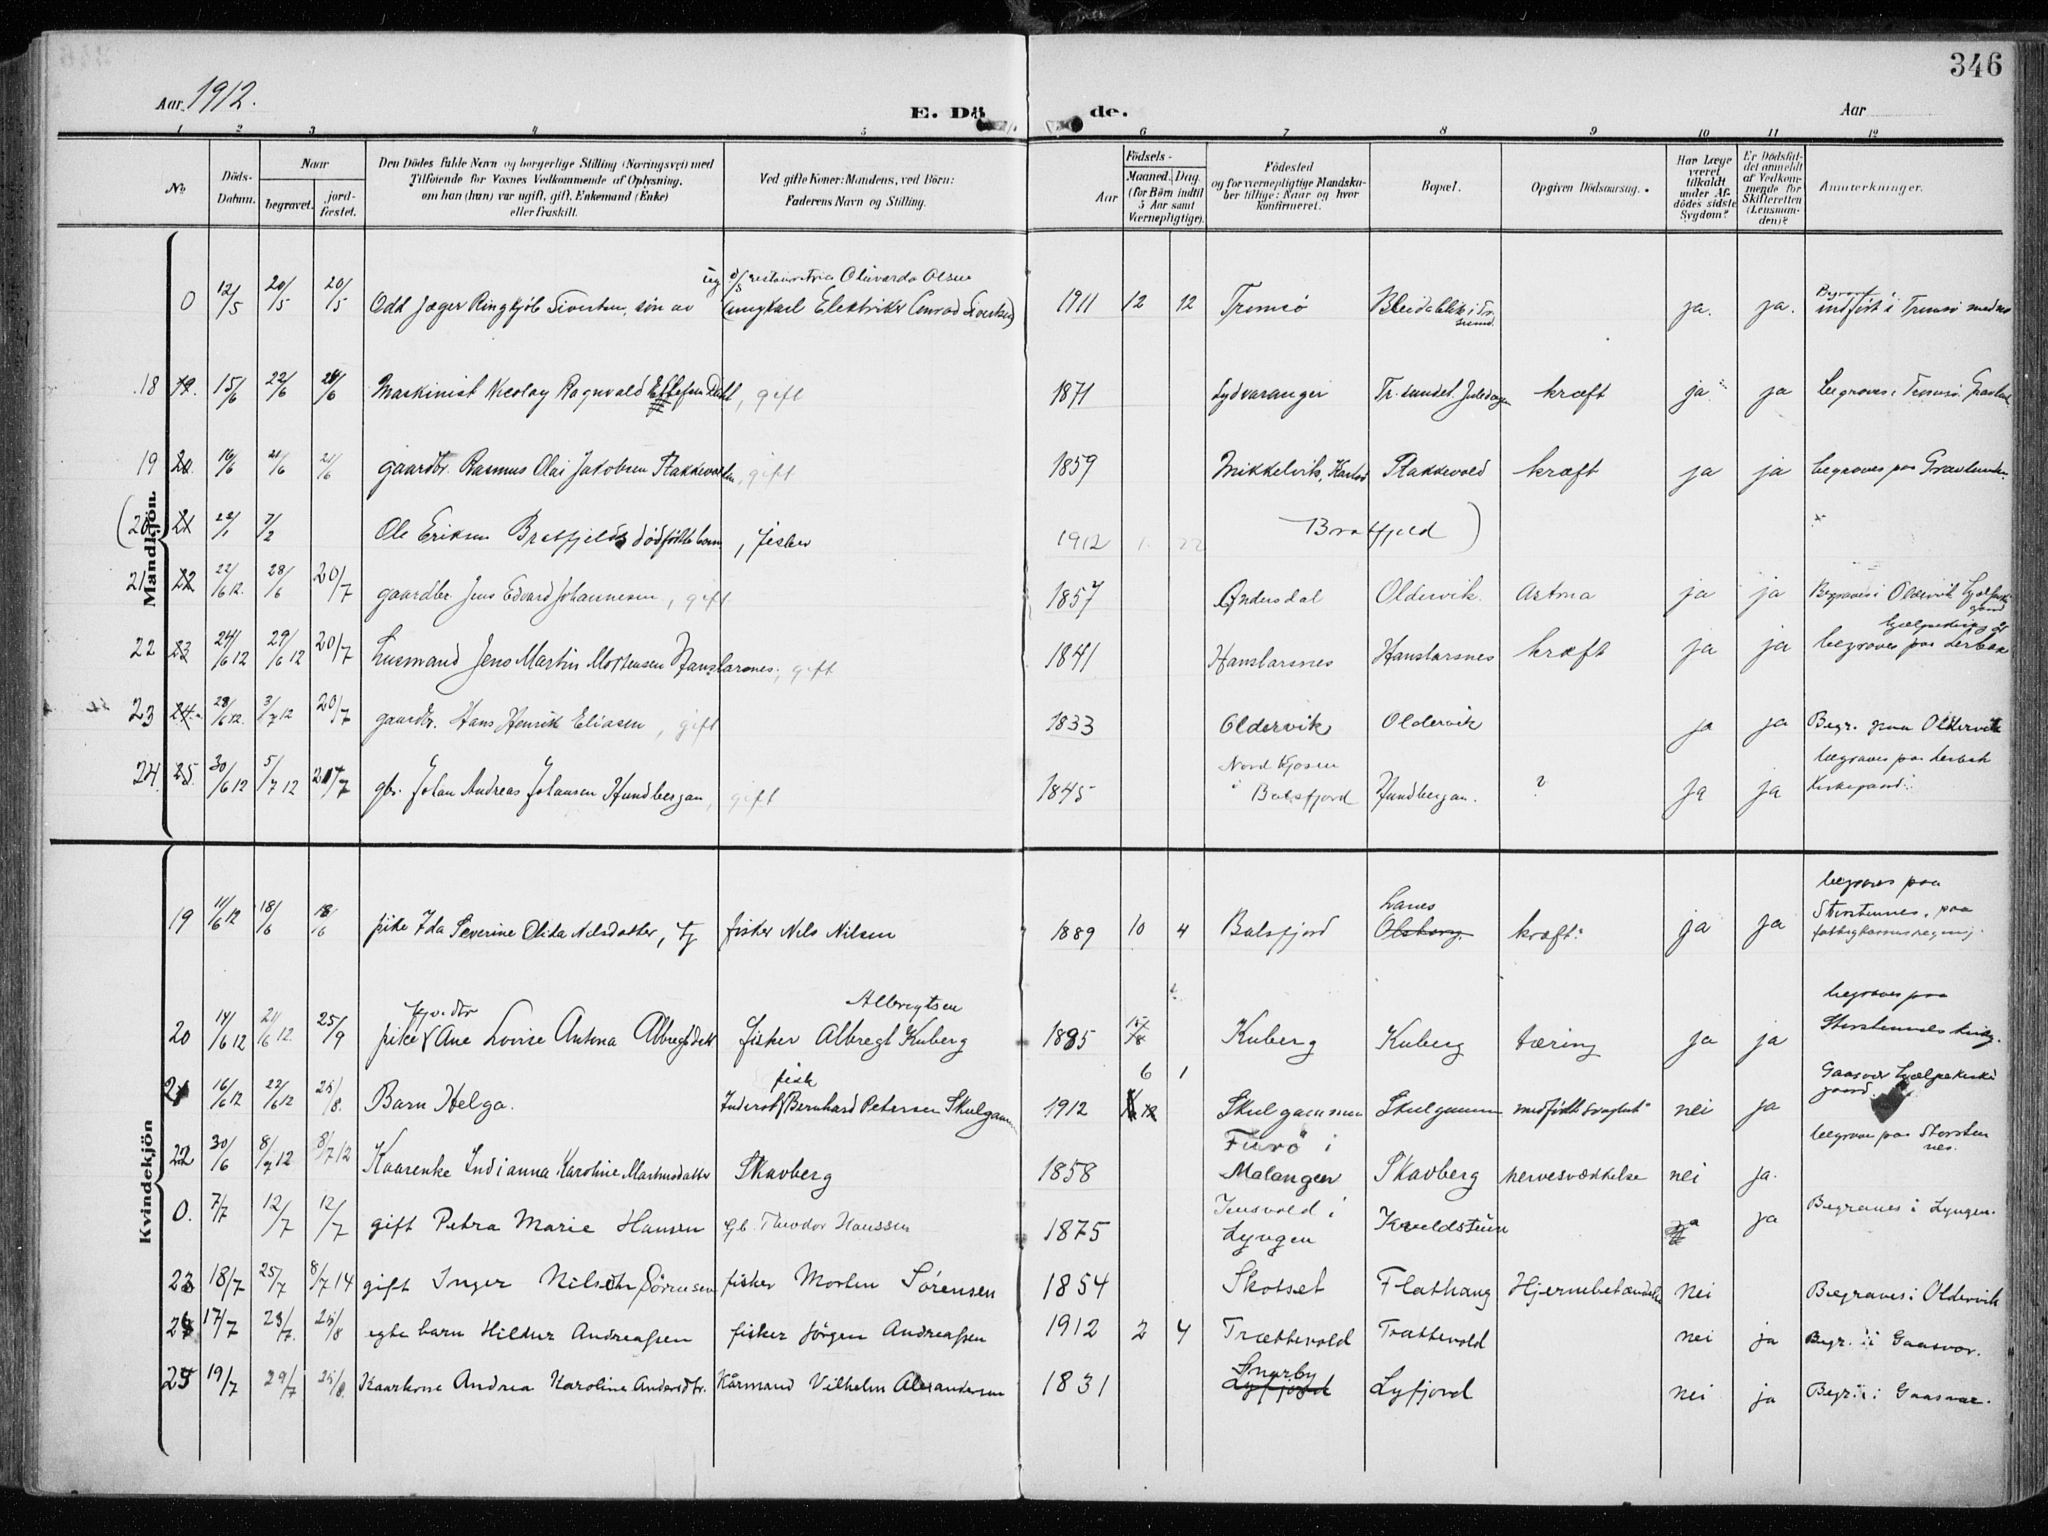 346
Aar 1912.
E. Dö de.
Aar
1 2 3 4 5 6 7 8 9 10 11 12
No
Döds-Datum.
Naar
begravet.
jord-fæstet.
Den Dödes fulde Navn og borgerlige Stilling (Næringsvei) med
Tilföiende for Voxnes Vedkommende af Oplysning,
om han (hun) var ugift, gift, Enkemand (Enke)
eller fraskilt.
Ved gifte Koner: Mandens, ved Börn:
Faderens Navn og Stilling.
Födsels-
Aar
Maaned. Dag.
(for Børn indtil
5 Aar samt
Værnepligtige).
Födested
og for værnepligtige Mandska-
ber tillige: Naar og hvor
konfirmeret.
Bopæl.
Opgiven Dödsaarsag.
Har Læge
været
tilkaldt
under Af-
dödes sidste
Sygdom?
Er Dödsfal-
det anmeldt
af Vedkom-
mende for
Skifteretten
(Lensman-
den)?
Anmærkninger.
Mandkjön.
0 12/5 20/5 20/5 Odd Jæger Ringkjöb Sivertsen, søn av ungkarl Elektriker Conrad Sivertsen) 1911 12 12 Tromsö ja. ja. indført i Tromsö
18 19. 15/6 22/6 Maskinist Nicolay Ragnvald Dahl, gift 1871 Sydvaranger Tr.sundet kræft ja ja begraves i Tromsö Gravlund
19 20 16/6 21/6 21/6 gaardbr. Rasmus Olai Jakobsen Stakkevolden, gift 1859 Mikkelvik, Karlsö Stakkevold kræft ja ja begraves paa Gravlunden.
(20 21 22/1 7/2 Ole Eriksen Bratfjelds dödfödte barn, fisker 1912 1. 22 Bratfjeld )
21 22 22/6 12. 28/6 20/7 gaardbr. Jens Edvard Johannesen, gift 1857 Andersdal Oldervik. Astma ja ja Begraves i Oldervik
22 23 24/6 12 29/6 12 20/7 husmand Jens Martin Mortensen Hanslarsnes, gift 1841 Hanslarsnes Hanslarsnes kræft ja ja begraves paa
23 24. 28/6 12. 3/7 12 20/7 gaardbr. Hans Henrik Eliasen, gift 1833 Oldervik Oldervik ja ja Begr. paa Oldervik
24. 25. 30/6 12 5/7 12 20/7 gbr. Johan Andreas Johansen Hundbergan, gift 1845 Nord Kjosen i Balsfjord Hundbergan. ? ja ja begraves paa
Kirkegaard.
Kvindekjön
19 11/6 12 18/6 18/6 pike Ida Severine Olida Nilsdatter, fisker Nils Nilsen 1889 10 4 Balsfjord Lanes kræft ja ja begraves paa
Storstennes, paa
fattigkassens regning.
20 14/6 12 21/6 12 25/9 pike Ane Lovise Antona Albregtsdatt fisker Albregt Albregtsen Kuberg 1895 Kuberg Kuberg tæring ja ja begraves paa
Storstennes
21 16/6 12 22/6 12 25/8. Barn Helga. Inderst fisk Bernhard Petersen Skulgam 1912 6 1 Skulgammen Skulgamm medfödt svaghet nei ja Gaasvær
22 30/6 8/7 12 8/7 12 Kaarenke Indianna Karoline Martinsdatter Skavberg 1858 Furö i Malangen Skavberg nervesvækkelse nei ja. begrave paa Storstennes.
0. 7/7 12/7 12/7 gift Petra Marie Hansen Gb. Theodor Hanssen 1875 Jensvold i Lyngen ja Begraves i Lyngen.
23 18/7 25/7 8/7 14 gift Inger Nilsdtr Sörensen fisker Morten Sörensen 1854 Skotset Flathaug Hjernebetændelse nei Begraves i Oldervik
24 17/7 23/7. 25/8 egte barn Hildur Andreassen fisker Jörgen Andreassen 1912 2 4 Trættevold Trættevold nei ja Begr. i Gaasvær.
25 19/7 29/7 25/8 Kaarkone Andrea Karoline Andersdtr. Kårmand Vilhelm Alexandersen 1831 Snarby Lyfjord Lyfjord nei ja Begr. i Gaasvær.